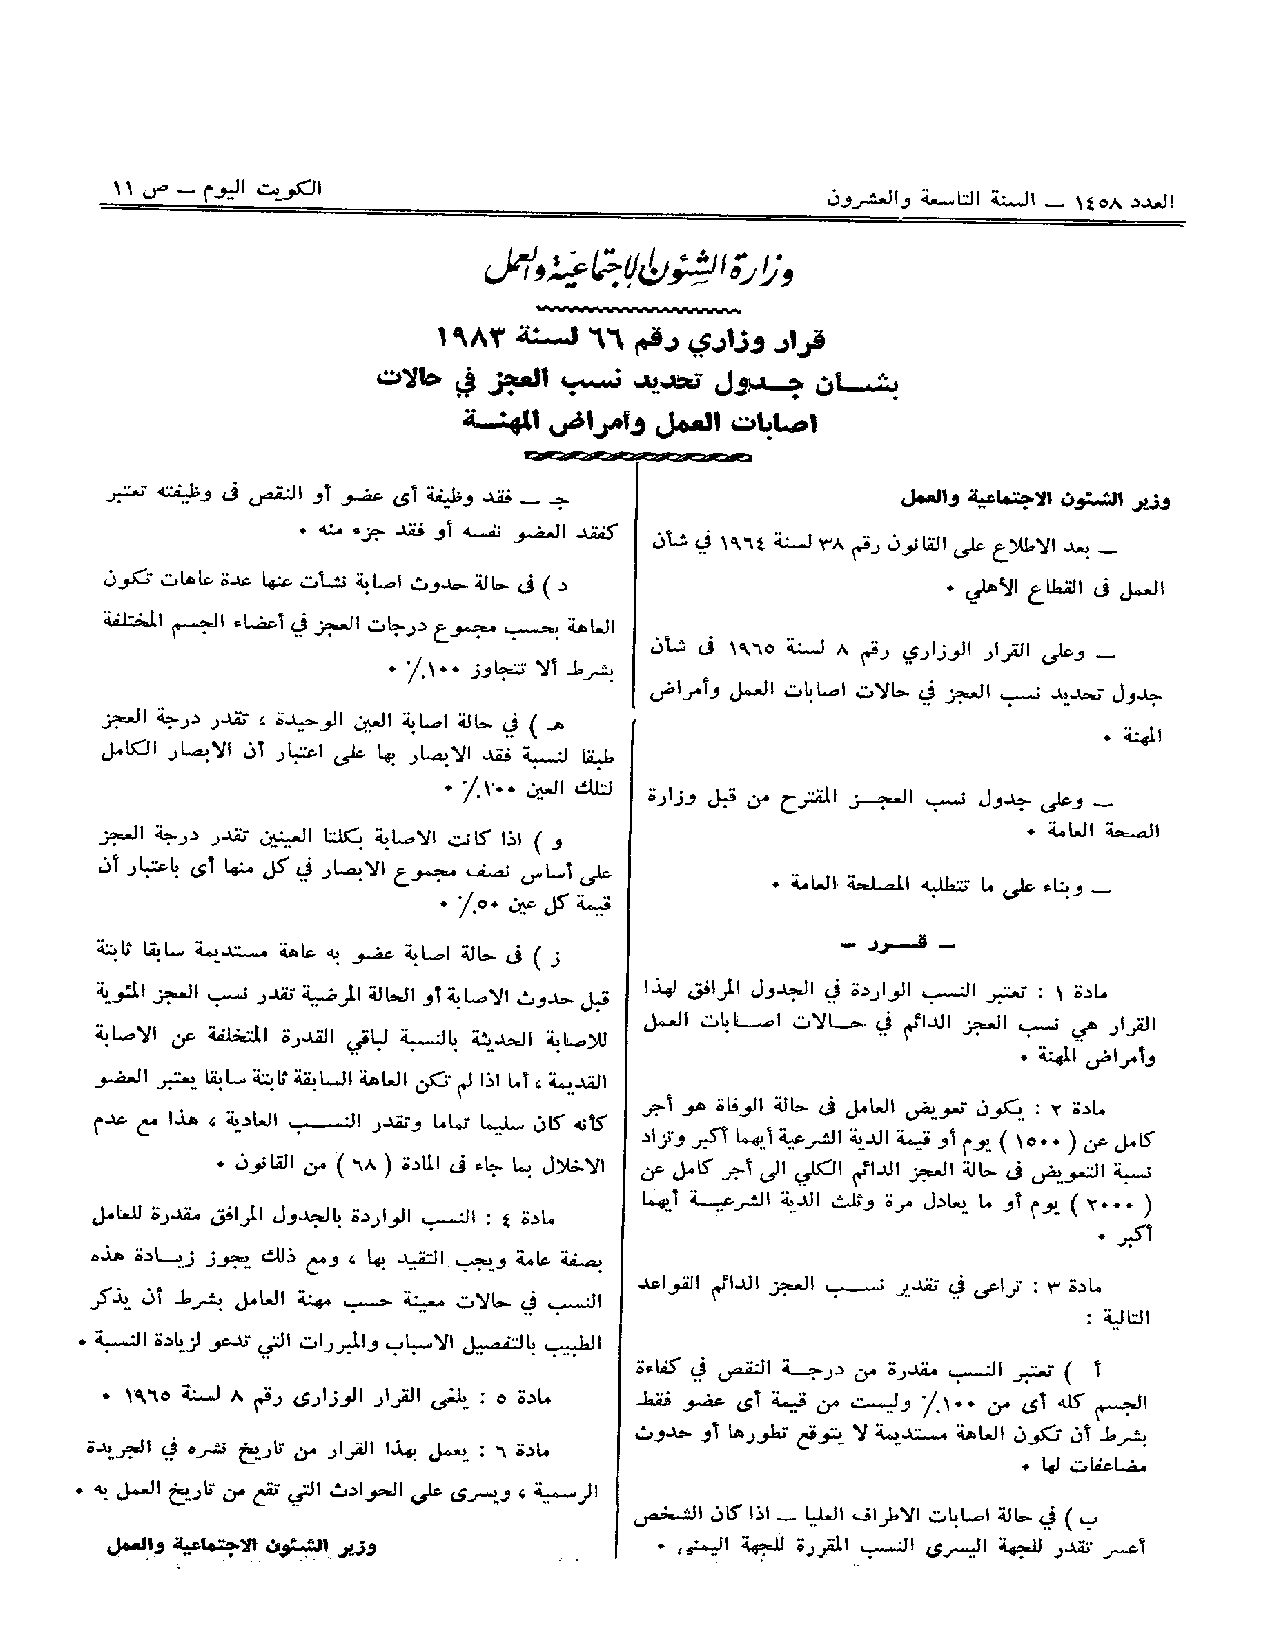 العدد ١٤٥٨ — السنة التاسعة والعشرون
الكويت اليوم — ص ١١
وزارة الشئون الاجتماعية والعمل
قرار وزاري رقم ٦٦ لسنة ١٩٨٣
بشــان جــدول تحديد نسب العجز في حالات
اصابات العمل وأمراض المهنــة
وزير الشئون الاجتماعية والعمل
— بعد الاطلاع على القانون رقم ٣٨ لسنة ١٩٦٤ في شأن
العمل فى القطاع الأهلي ٠
— وعلى القرار الوزاري رقم ٨ لسنة ١٩٦٥ فى شأن
جدول تحديد نسب العجز في حالات اصابات العمل وأمراض
المهنة ٠
— وعلى جدول نسب العجــز المقترح من قبل وزارة
الصحة العامة ٠
— وبناء على ما تتطلبه المصلحة العامة ٠
— قــرر —
مادة ١ : تعتبر النسب الواردة في الجدول المرافق لهذا
القرار هي نسب العجز الدائم في حــالات اصــابات العمل
وأمراض المهنة ٠
مادة ٢ : يكون تعويض العامل فى حالة الوفاة هو أجر
كامل عن ( ١٥٠٠ ) يوم أو قيمة الدية الشرعية أيهما أكبر وتزاد
نسبة التعويض فى حالة العجز الدائم الكلي الى أجر كامل عن
( ٢٠٠٠ ) يوم أو ما يعادل مرة وثلث الدية الشرعيــة أيهما
أكبر ٠
مادة ٣ : تراعى في تقدير نســب العجز الدائم القواعد
التالية :
أ ) تعتبر النسب مقدرة من درجــة النقص في كفاءة
الجسم كله أى من ١٠٠٪ وليست من قيمة أى عضو فقط
بشرط أن تكون العاهة مستديمة لا يتوقع تطورها أو حدوث
مضاعفات لها ٠
ب ) في حالة اصابات الاطراف العليا — اذا كان الشخص
أعسر تقدر للجهة اليسرى النسب المقررة للجهة اليمنى ٠
جـ — فقد وظيفة أى عضو أو النقص فى وظيفته تعتبر
كفقد العضو نفسه أو فقد جزء منه ٠
د ) فى حالة حدوث اصابة نشأت عنها عدة عاهات تكون
العاهة بحسب مجموع درجات العجز في أعضاء الجسم المختلفة
بشرط ألا تتجاوز ١٠٠٪ ٠
هـ ) في حالة اصابة العين الوحيدة ، تقدر درجة العجز
طبقا لنسبة فقد الابصار بها على اعتبار أن الابصار الكامل
لتلك العين ١٠٠٪ ٠
و ) اذا كانت الاصابة بكلتا العينين تقدر درجة العجز
على أساس نصف مجموع الابصار في كل منها أى باعتبار أن
قيمة كل عين ٥٠٪ ٠
ز ) فى حالة اصابة عضو به عاهة مستديمة سابقا ثابتة
قبل حدوث الاصابة أو الحالة المرضية تقدر نسب العجز المئوية
للاصابة الحديثة بالنسبة لباقي القدرة المتخلفة عن الاصابة
القديمة ، أما اذا لم تكن العاهة السابقة ثابتة سابقا يعتبر العضو
كأنه كان سليما تماما وتقدر النســب العادية ، هذا مع عدم
الاخلال بما جاء فى المادة ( ٦٨ ) من القانون ٠
مادة ٤ : النسب الواردة بالجدول المرافق مقدرة للعامل
بصفة عامة ويجب التقيد بها ، ومع ذلك يجوز زيــادة هذه
النسب في حالات معينة حسب مهنة العامل بشرط أن يذكر
الطبيب بالتفصيل الاسباب والمبررات التي تدعو لزيادة النسبة ٠
مادة ٥ : يلغى القرار الوزارى رقم ٨ لسنة ١٩٦٥ ٠
مادة ٦ : يعمل بهذا القرار من تاريخ نشره في الجريدة
الرسمية ، ويسرى على الحوادث التي تقع من تاريخ العمل به ٠
وزير الشئون الاجتماعية والعمل